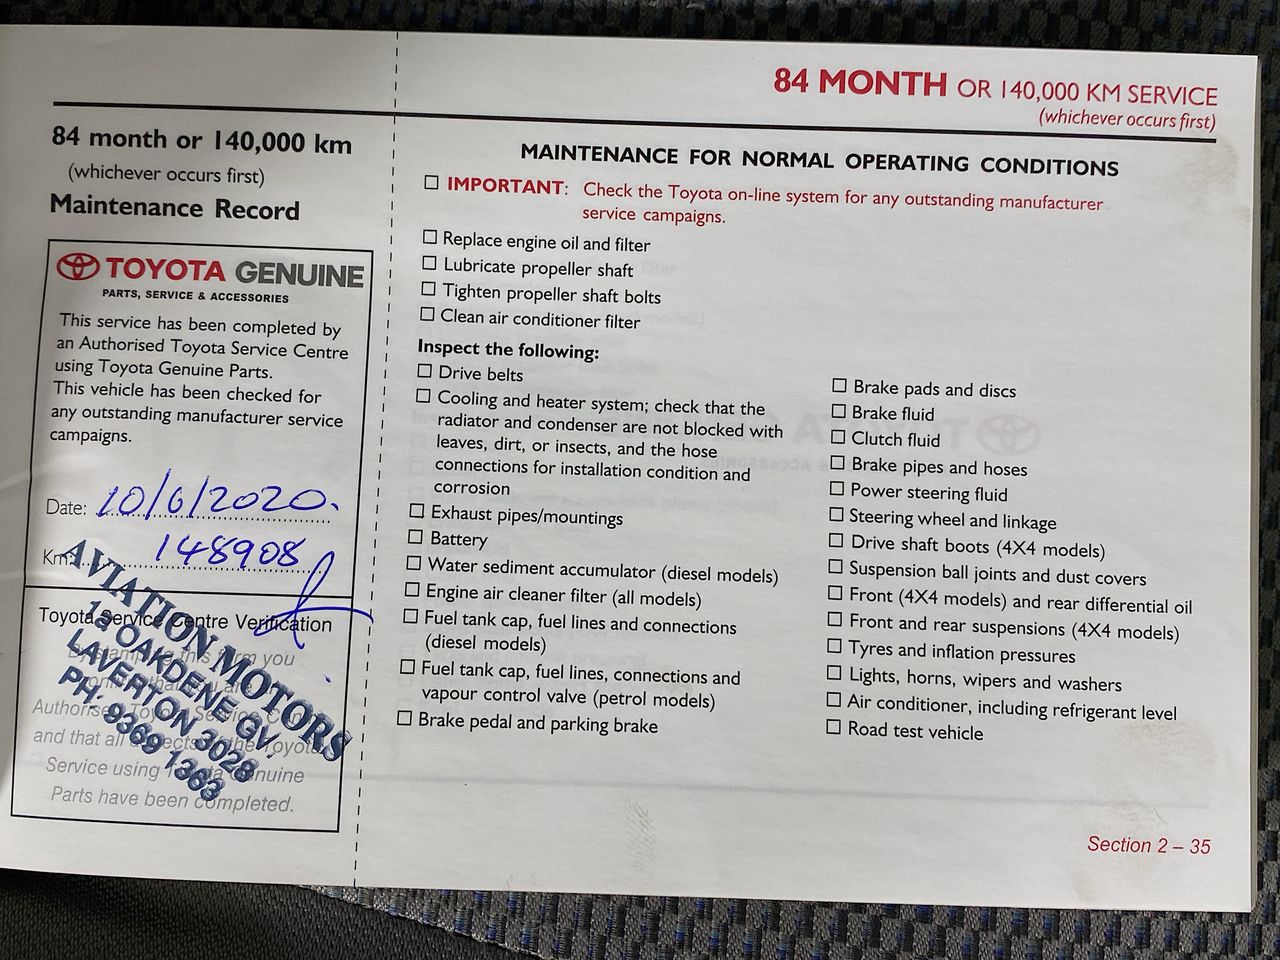 84 MONTH OR 140,000 KM SERVICE
(whichever occurs first)
84 month or 140,000 km
(whichever occurs first)
Maintenance Record
TOYOTA GENUINE
PARTS, SERVICE & ACCESSORIES
This service has been completed by
an Authorised Toyota Service Centre
using Toyota Genuine Parts.
This vehicle has been checked for
any outstanding manufacturer service
campaigns.
Date: 10/6/2020.
Km: 148908
Toyota Service Centre Verification
By stamping this form you
Authorised Toyota Service
and that all aspects of the Toyota
Service using Toyota Genuine
Parts have been completed.
AVIATION MOTORS
1a OAKDENE GV.
LAVERTON 3028
PH: 9369 1363
MAINTENANCE FOR NORMAL OPERATING CONDITIONS
IMPORTANT: Check the Toyota on-line system for any outstanding manufacturer
service campaigns.
Replace engine oil and filter
Lubricate propeller shaft
Tighten propeller shaft bolts
Clean air conditioner filter
Inspect the following:
Drive belts
Cooling and heater system; check that the
radiator and condenser are not blocked with
leaves, dirt, or insects, and the hose
connections for installation condition and
corrosion
Exhaust pipes/mountings
Battery
Water sediment accumulator (diesel models)
Engine air cleaner filter (all models)
Fuel tank cap, fuel lines and connections
(diesel models)
Fuel tank cap, fuel lines, connections and
vapour control valve (petrol models)
Brake pedal and parking brake
Brake pads and discs
Brake fluid
Clutch fluid
Brake pipes and hoses
Power steering fluid
Steering wheel and linkage
Drive shaft boots (4X4 models)
Suspension ball joints and dust covers
Front (4X4 models) and rear differential oil
Front and rear suspensions (4X4 models)
Tyres and inflation pressures
Lights, horns, wipers and washers
Air conditioner, including refrigerant level
Road test vehicle
Section 2 – 35